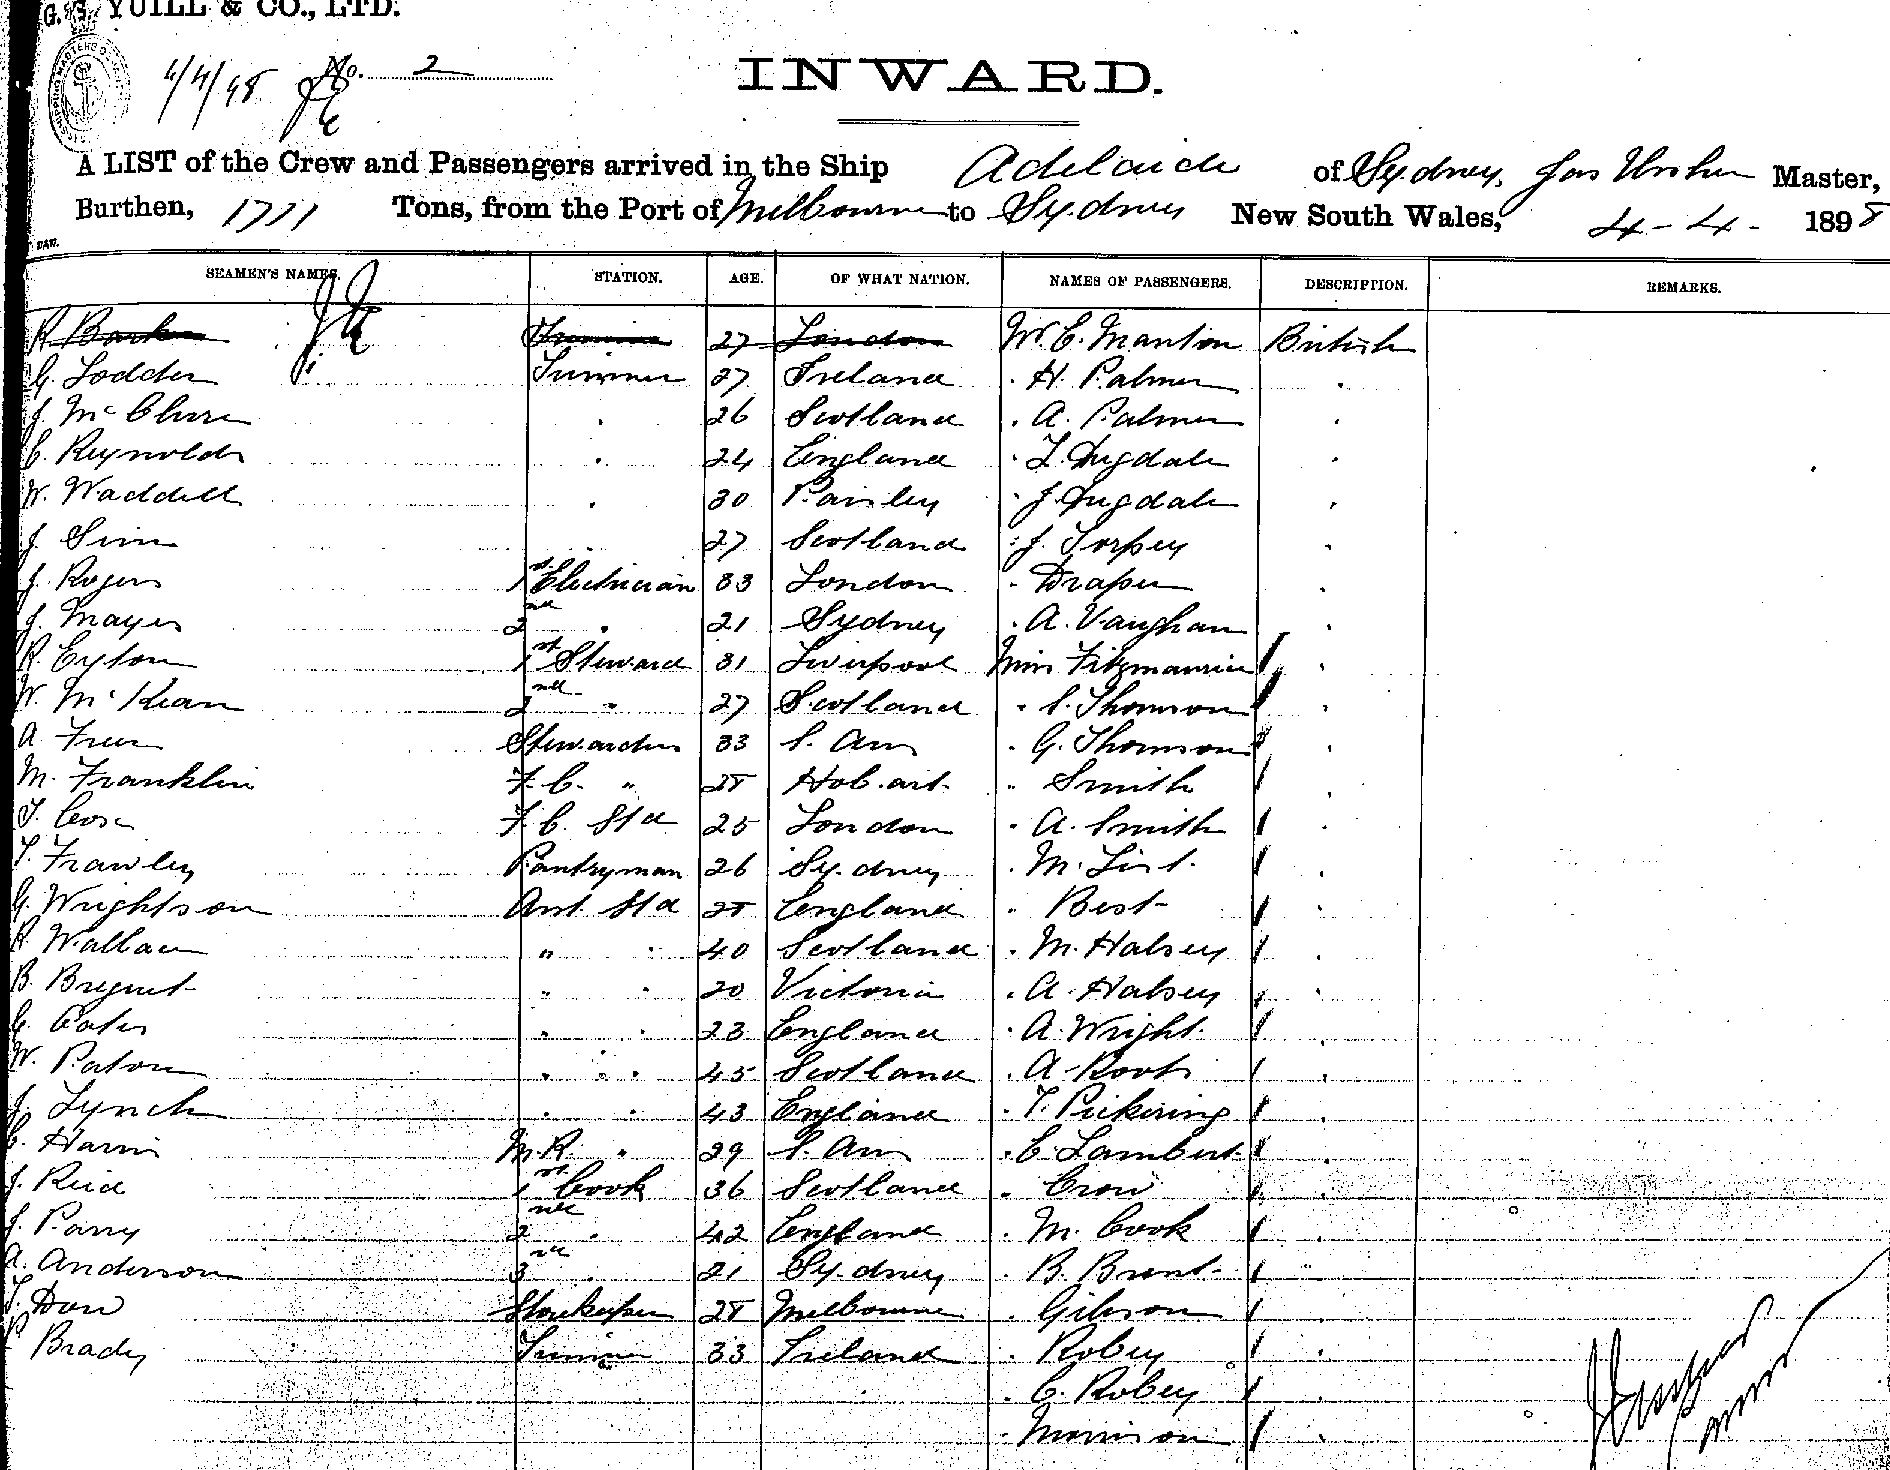 G. S. YUILL & CO., LTD.
4/4/98 No. 2
INWARD.
A LIST of the Crew and Passengers arrived in the Ship Adelaide of Sydney, Jas Usher Master,
Burthen, 1711 Tons, from the Port of Melbourne to Sydney New South Wales, 4 - 4 - 1898
SEAMEN'S NAMES. STATION. AGE. OF WHAT NATION. NAMES OF PASSENGERS. DESCRIPTION. REMARKS.
R Barker Trimmer 27 London W. E. Manton British
G. Lodder Trimmer 27 Ireland . H. Palmer .
J. McClure . 26 Scotland . A. Palmer .
C. Reynolds . 24 England . L. Dugdale .
W. Waddell . 30 Paisley . J. Dugdale .
J. Sim 27 Scotland . J. Torpey .
J. Rogers 1st Electrician 33 London . Draper .
J. Mayes 2nd . 21 Sydney . A. Vaughan .
R. Eyton 1st Steward 31 Liverpool Miss Fitzmaurice .
W. McKean 2nd " 27 Scotland . S. Thomson .
A. Freer Stewardess 33 S. Aus . G. Thomson .
M. Franklin F. C. " 28 Hobart " Smith .
T. Cose F. C. Std 25 London . A. Smith .
T. Frawley Pantryman 26 Sydney . M. List .
G. Wrightson Asst Std 28 England . Best .
R. Wallace " . 40 Scotland . M. Halsey .
B. Breguet " . 20 Victoria . A. Halsey .
G. Cates . . 23 England . A. Wright .
W. Paton . . 45 Scotland . A. Roots .
J. Lynch . . 43 England . T. Pickering .
C. Harris M. R. . 29 S. Aus . C. Lambert .
J. Reid 1st Cook 36 Scotland . Crow .
J. Parry 2nd . 42 England . M. Cook .
A. Anderson 3rd . 21 Sydney . B. Brent .
T. Dow Storekeeper 28 Melbourne . Gibson .
Brady Trimmer 33 Ireland . Robey .
. C. Robey .
. Morrison .